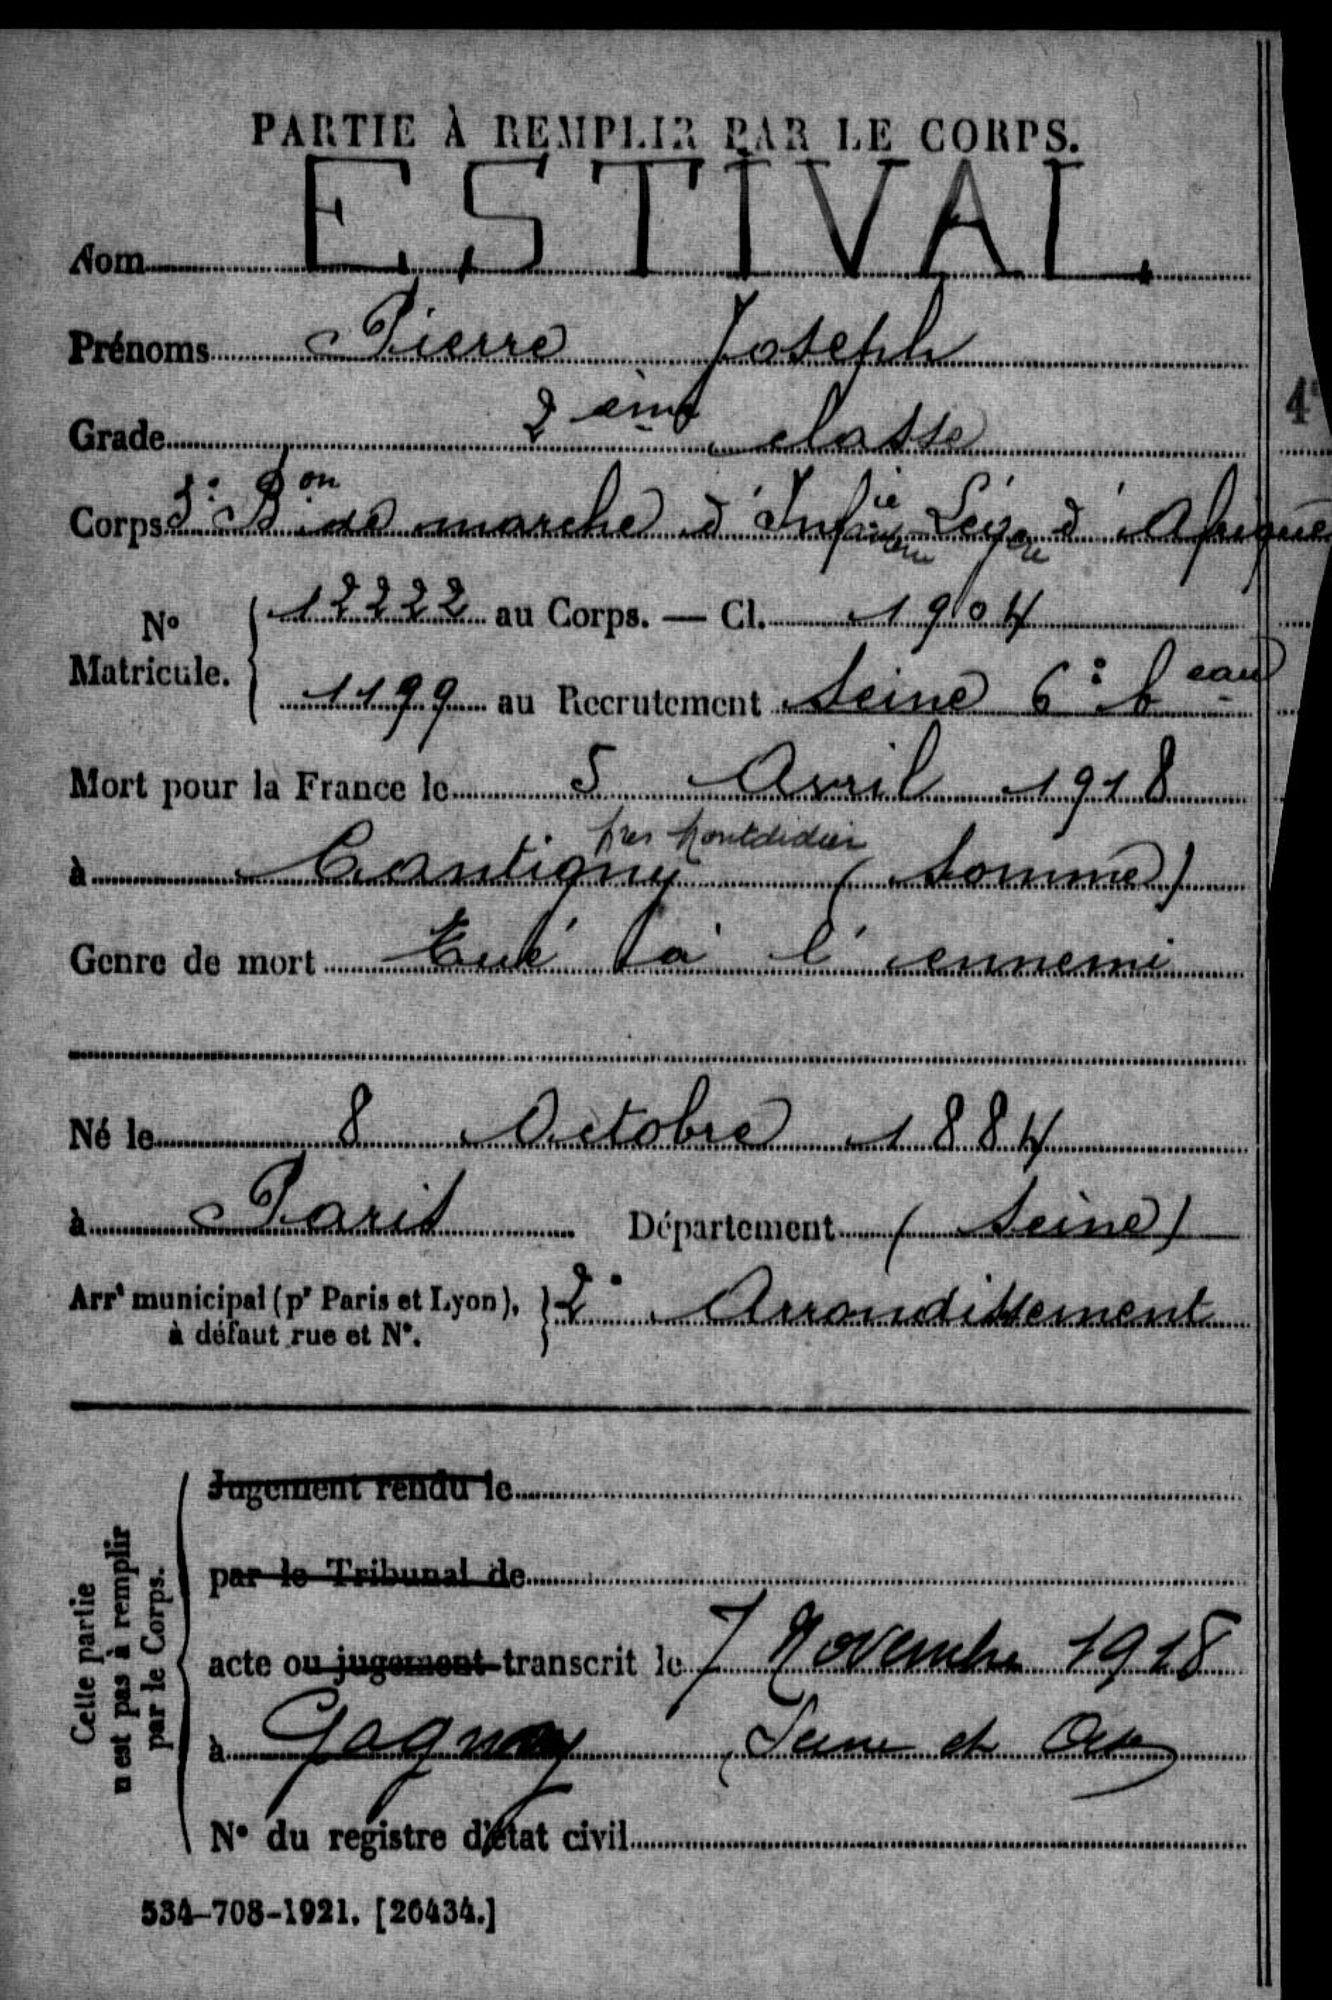 PARTIE À REMPLIR PAR LE CORPS.
Nom ESTIVAL
Prénoms Pierre Joseph
Grade 2ème classe
Corps 3e Bon de marche d'Infanterie Légère d'Afrique
No Matricule. 12222 au Corps. — Cl. 1904
1199 au Recrutement Seine 6e beau
Mort pour la France le 5 Avril 1918
près Montdidier
à Cantigny (Somme)
Genre de mort Tué à l'ennemi
Né le 8 Octobre 1884
à Paris Département (Seine)
Arrt municipal (pr Paris et Lyon), à défaut rue et No. 2e Arrondissement
Cette partie n'est pas à remplir par le Corps.
Jugement rendu le
par le Tribunal de
acte ou jugement transcrit le 7 Novembre 1918
à Gagny Seine et Oise
No du registre d'état civil
534-708-1921. [26434.]